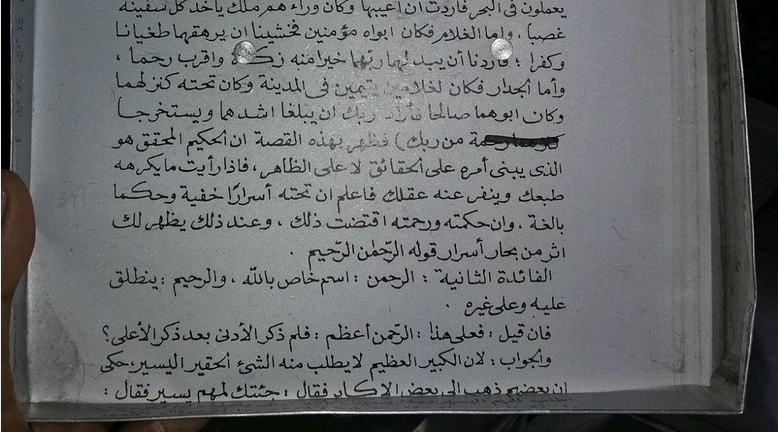 يعملون فى البحر فاردت ان اعيبها وكان وراءهم ملك يأخذ كل سفينة
غصبا ، واما الغلام فكان ابواه مؤمنين فخشينا ان يرهقهما طغيانا
وكفرا ؛ فاردنا أن يبدلهما ربهما خيرا منه زكاة واقرب رحما ،
وأما الجدار فكان لغلامين يتيمين فى المدينة وكان تحته كنز لهما
وكان ابوهما صالحا فأراد ربك ان يبلغا اشدهما ويستخرجا
من ربك) فظهر بهذه القصة ان الحكيم المحقق هو
الذى يبنى أمره على الحقائق لا على الظاهر ، فاذا رأيت ما يكرهه
طبعك وينفر عنه عقلك فاعلم ان تحته أسرارًا خفية وحكما
بالغة ، وان حكمته ورحمته اقتضت ذلك ، وعند ذلك يظهر لك
اثر من بحار أسرار قوله الرحمٰن الرحيم .
الفائدة الثانية : الرحمن : اسم خاص بالله ، والرحيم : ينطلق
عليه وعلى غيره .
فان قيل : فعلى هذا : الرحمن أعظم : فلم ذكر الأدنى بعد ذكر الأعلى؟
والجواب : لان الكبير العظيم لا يطلب منه الشئ الحقير اليسير، حكى
ان بعضهم ذهب الى بعض الاكابر فقال : جئتك لمهم يسير فقال :